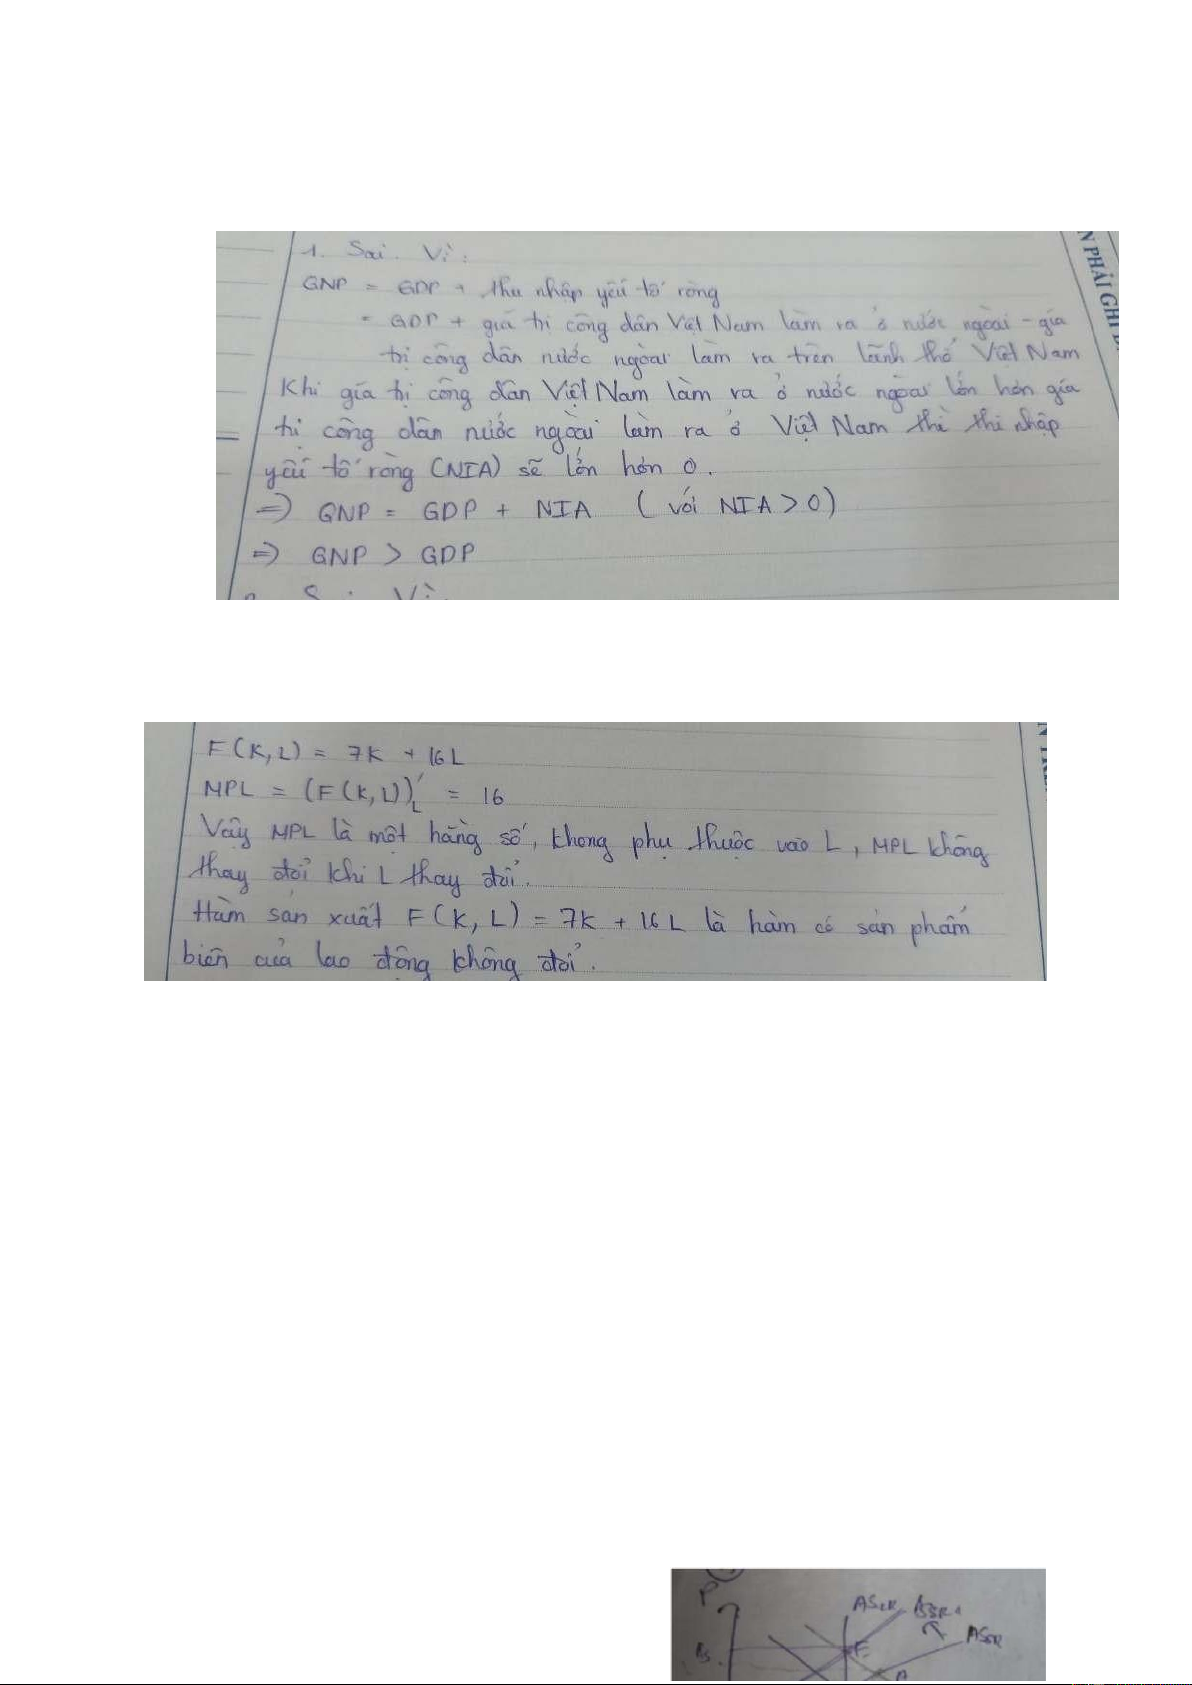 1. Sai. Vì:
GNP = GDP + thu nhập yếu tố ròng
= GDP + giá trị công dân Việt Nam làm ra ở nước ngoài - giá
trị công dân nước ngoài làm ra trên lãnh thổ Việt Nam
Khi giá trị công dân Việt Nam làm ra ở nước ngoài lớn hơn giá
trị công dân nước ngoài làm ra ở Việt Nam thì thi nhập
yếu tố ròng (NIA) sẽ lớn hơn 0.
=> GNP = GDP + NIA ( với NIA > 0)
=> GNP > GDP
N PHẢI GHI
F(K,L) = 7K + 16L
MPL = (F(K,L))'L = 16
Vậy MPL là một hằng số, không phụ thuộc vào L, MPL không
thay đổi khi L thay đổi.
Hàm sản xuất F(K,L) = 7K + 16L là hàm có sản phẩm
biên của lao động không đổi.
P
ASLR
ASSR
E
A